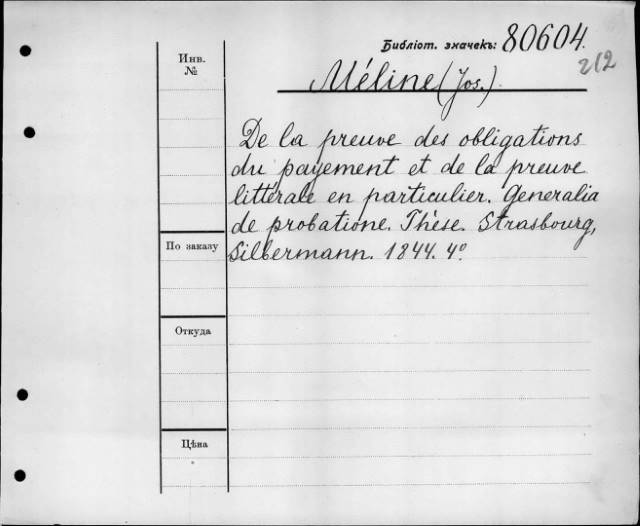 Библіот. значекъ: 80604.
212
Инв.
№
Méline (Jos.)
De la preuve des obligations
du payement et de la preuve
littérale en particulier. Generalia
de probatione. Thèse. Strasbourg,
Silbermann. 1844. 4º
По заказу
Откуда
Цѣна